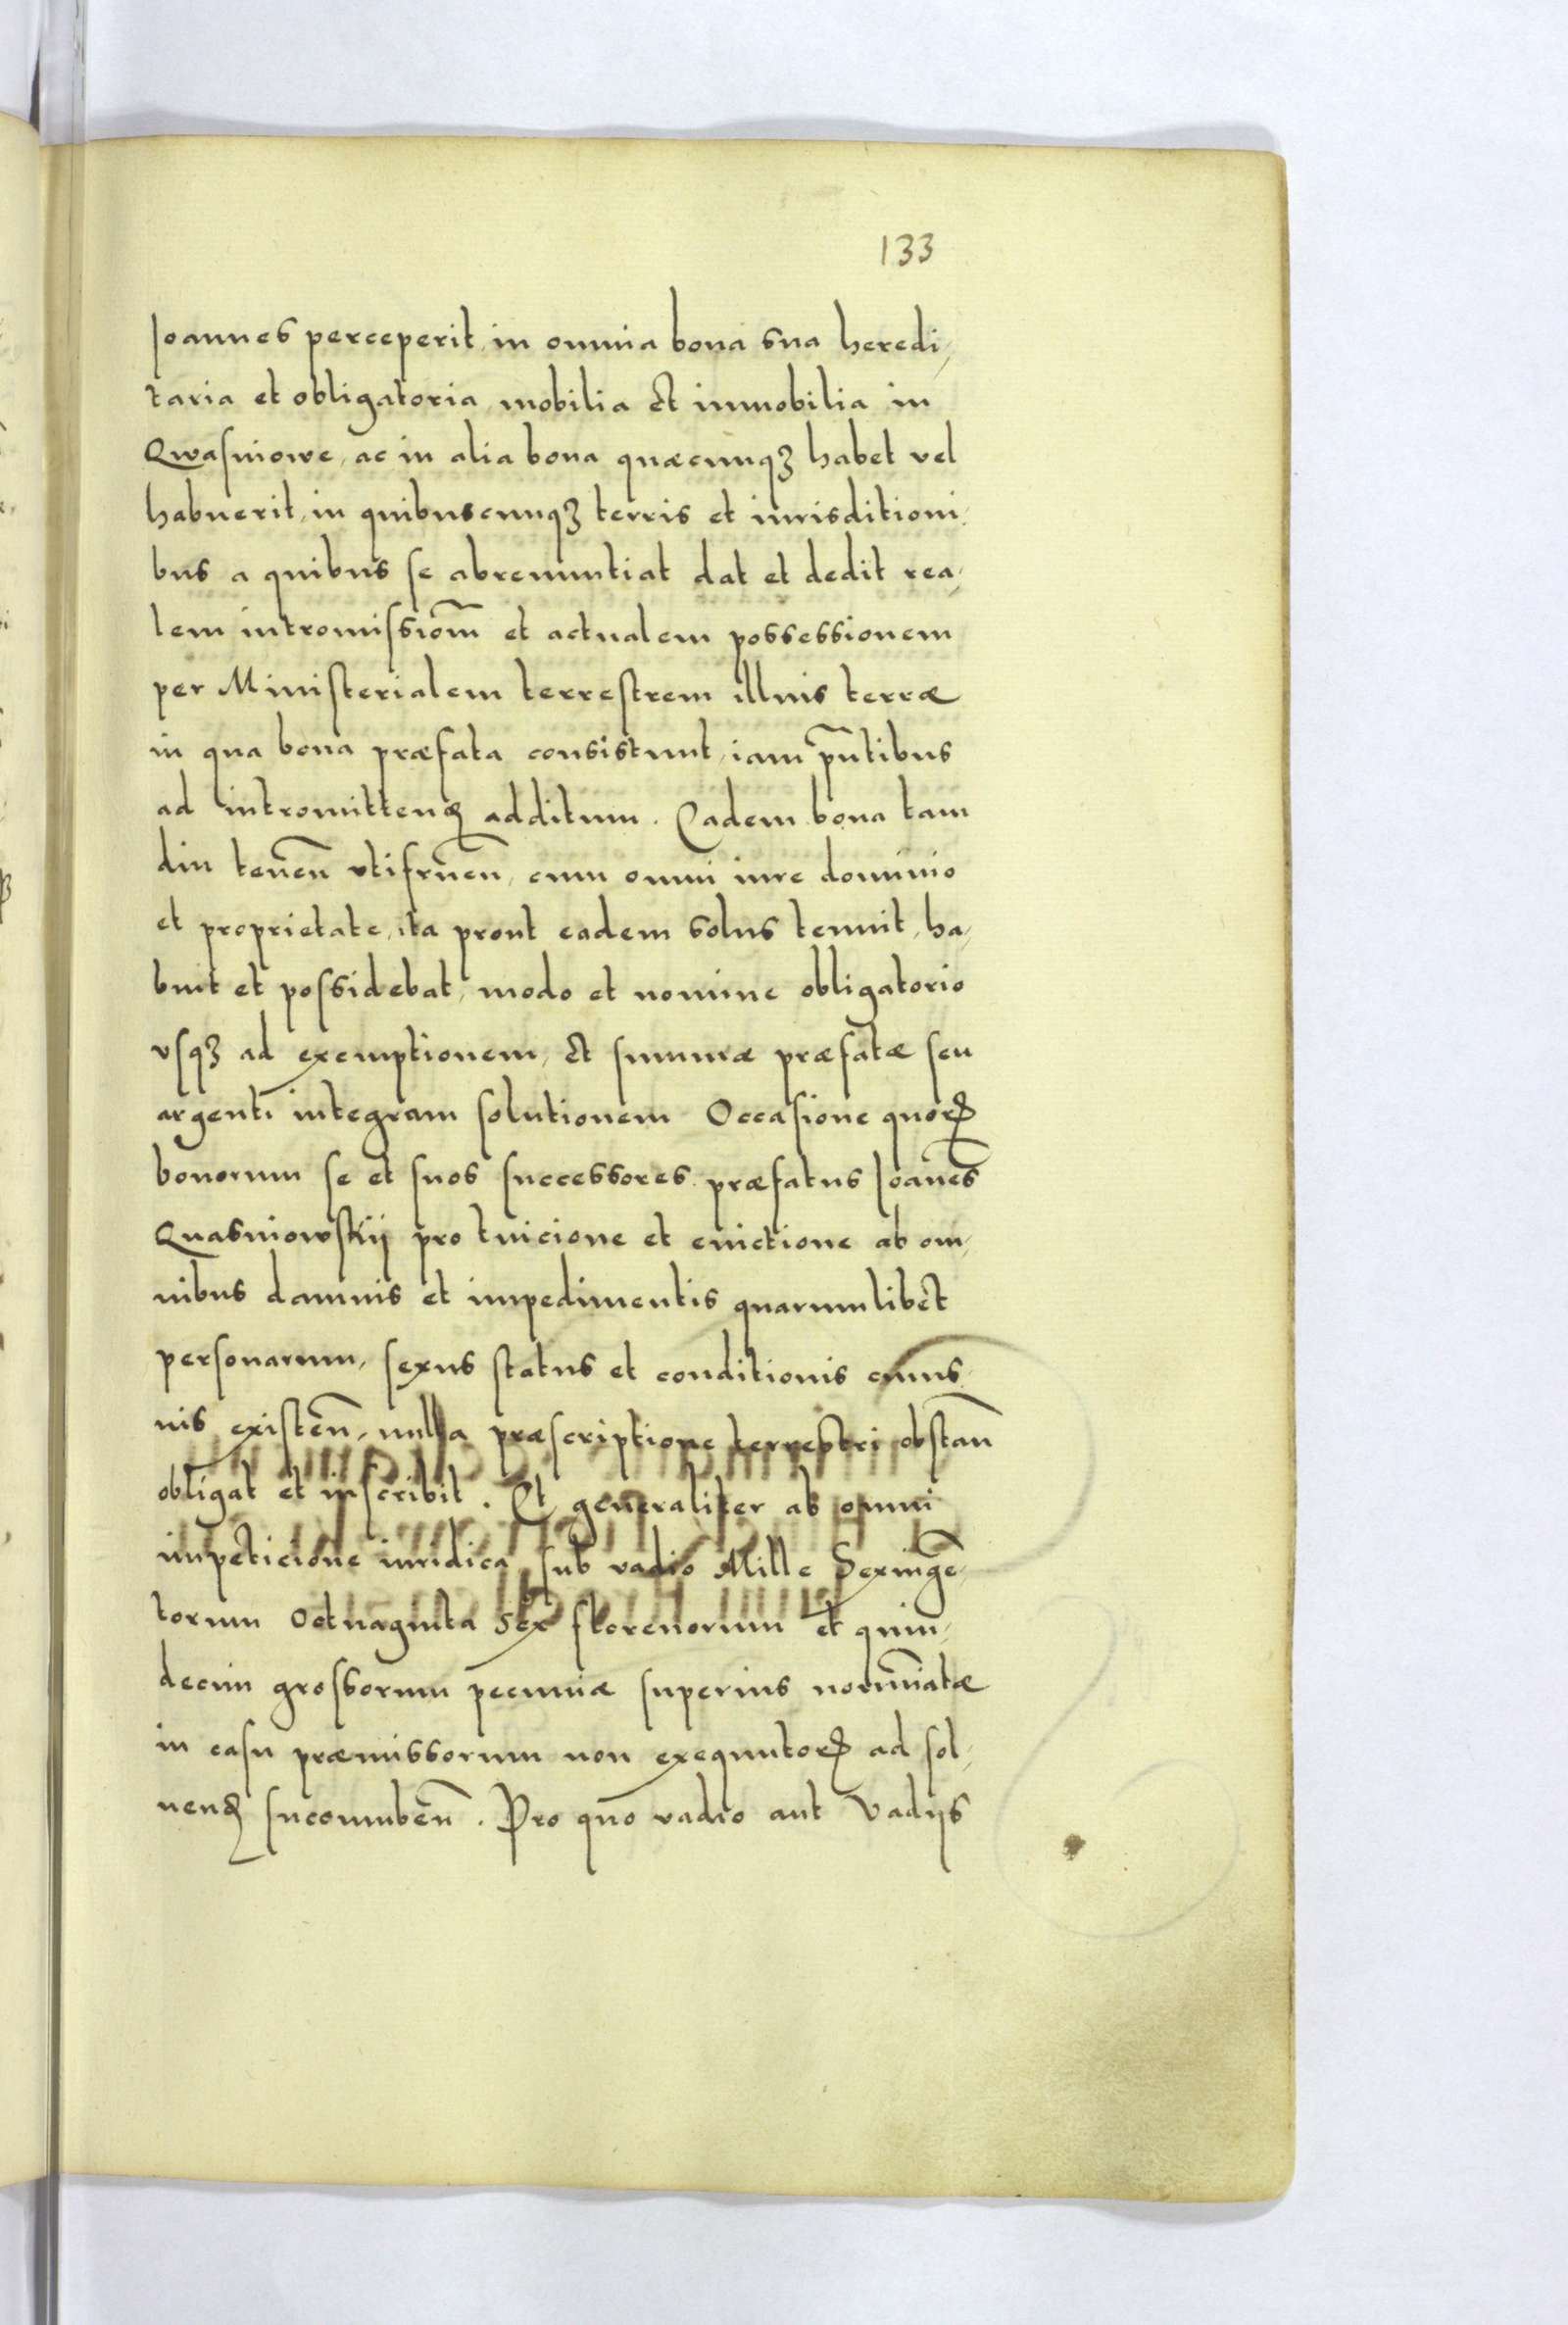 133
Joannes perceperit, in omnia bona sua heredi,
taria et obligatoria, mobilia et immobilia in
Qwasniowe, ac in alia bona quæcunqȝ habet vel
habuerit, in quibuscunqȝ terris et iurisditioni,
bus a quibus se abrenuntiat dat et dedit rea,
lem intromissiom̃ et actualem possessionem
per Ministerialem terrestrem illius terræ
in qua bona præfata consistunt, iam p̃ntibus
ad intromittenꝝ additum. Eadem bona tam
diu teneñ vtifrueñ, cum omni iure dominio
et proprietate, ita prout eadem solus tenuit, ha,
buit et possidebat, modo et nomine obligatorio
vsqȝ ad exemptionem, et summæ præfatæ seu
argenti integram solutionem Occasione quoꝝ
bonorum se et suos successores præfatus Joañes
Quasniowskij pro tuicione et euictione ab om,
nibus damnis et impedimentis quarumlibet
personarum, sexus status et conditionis cuius,
uis existeñ, nulla præscriptione terrestri obstañ
obligat et inscribit. Et generaliter ab omni
impeticione iuridica, sub vadio Mille Sexingẽ,
torum Octuaginta Sex florenorum et quin,
decim grossorum pecuniæ superius nomĩatæ
in casu præmissorum non exequutoꝝ ad sol,
uenꝝ succumbeñ. Pro quo vadio aut Vadijs